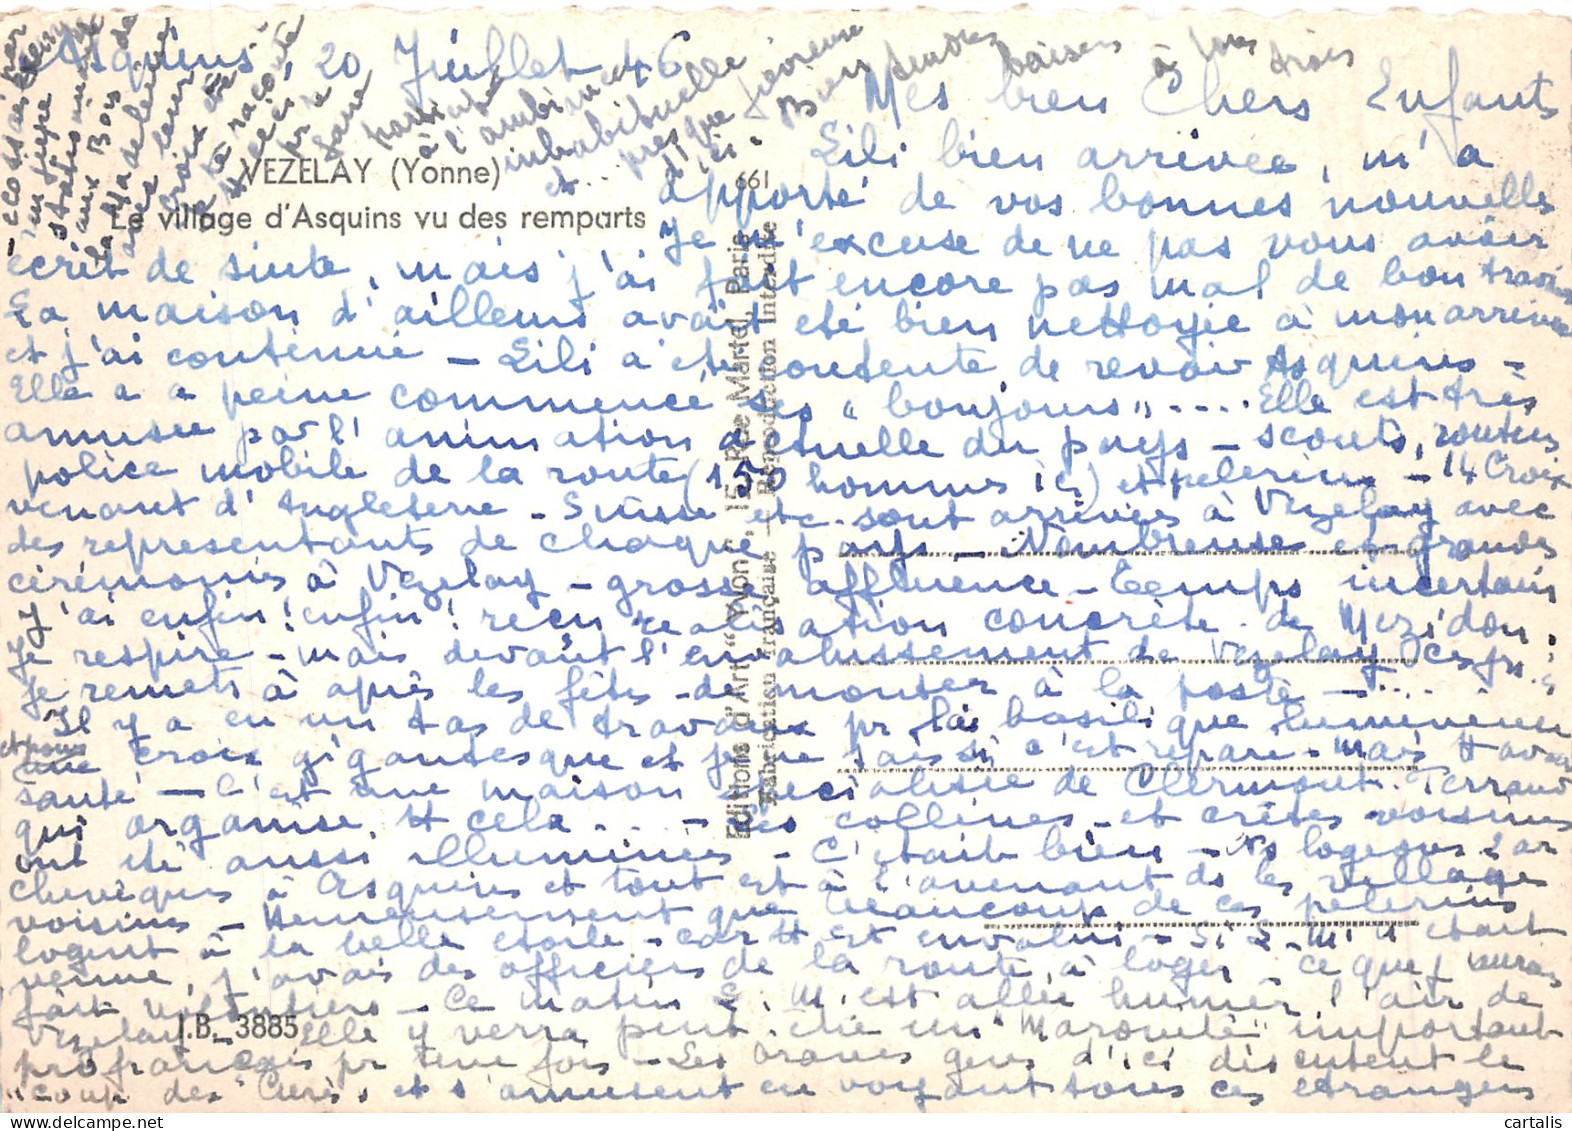 Asquins, 20 Juillet 46
Mes bien Chers Enfants
VEZELAY (Yonne)
Le village d'Asquins vu des remparts
661
Lili bien arrivée, m'a
apporté de vos bonnes nouvelles
Je m'excuse de ne pas vous avoir
écrit de suite, mais j'ai fait encore pas mal de bon travail
La maison d'ailleurs avait été bien nettoyée à mon arrivée
et j'ai continué - Lili a été contente de revoir Asquins -
Elle a à peine commencé ses "bonjours" .... Elle est très
amusée par l'animation actuelle du pays - scouts, routiers
police mobile de la route (150 hommes ici) et pelerins - 14 Croix
venant d'Angleterre - Suisse etc. sont arrivées à Vézelay avec
des représentants de chaque pays - Nombreuse et grandes
cérémonies à Vézelay - grosse affluence - Temps incertain
J'ai enfin! enfin! reçu réalisation concrète de Mezidon.
Je respire - mais devant l'envahissement de Vézelay ces jrs-ci
je remets à après les fêtes de monter à la poste - ....
Il y a eu un tas de travaux pr la basilique lumineuse
et pour une croix gigantesque et je ne sais si c'est réparé - Mais tt avait
sauté - C'est une maison spécialisée de Clermont-Ferrand
qui organise tt cela ... - Les collines et crêtes voisines
ont été aussi illuminées - C'était bien - Ns logeons 2 ar
chevêques à Asquins et tout est à l'avenant ds les villages
voisins - Heureusement que beaucoup de ces pélerins
logent à la belle étoile - car tt est envahi - Si L. M. n'était
venue, j'avais des officiers de la route à loger - ce que j'aurais
fait volontiers - Ce matin L. M. est allée humer l'air de
Vézelay - Elle y verra peut-être un "Maronite" important
profrançais pr une fois - Les braves gens d'ici discutent le
"coup des Curés" et s'amusent en voyant tous ces étrangers
Bien tendres baisers à tous trois
Editions d'Art "Yvon", 15, Rue Martel, Paris
Fabrication Française - Reproduction Interdite
J.B. 3885
cartalis